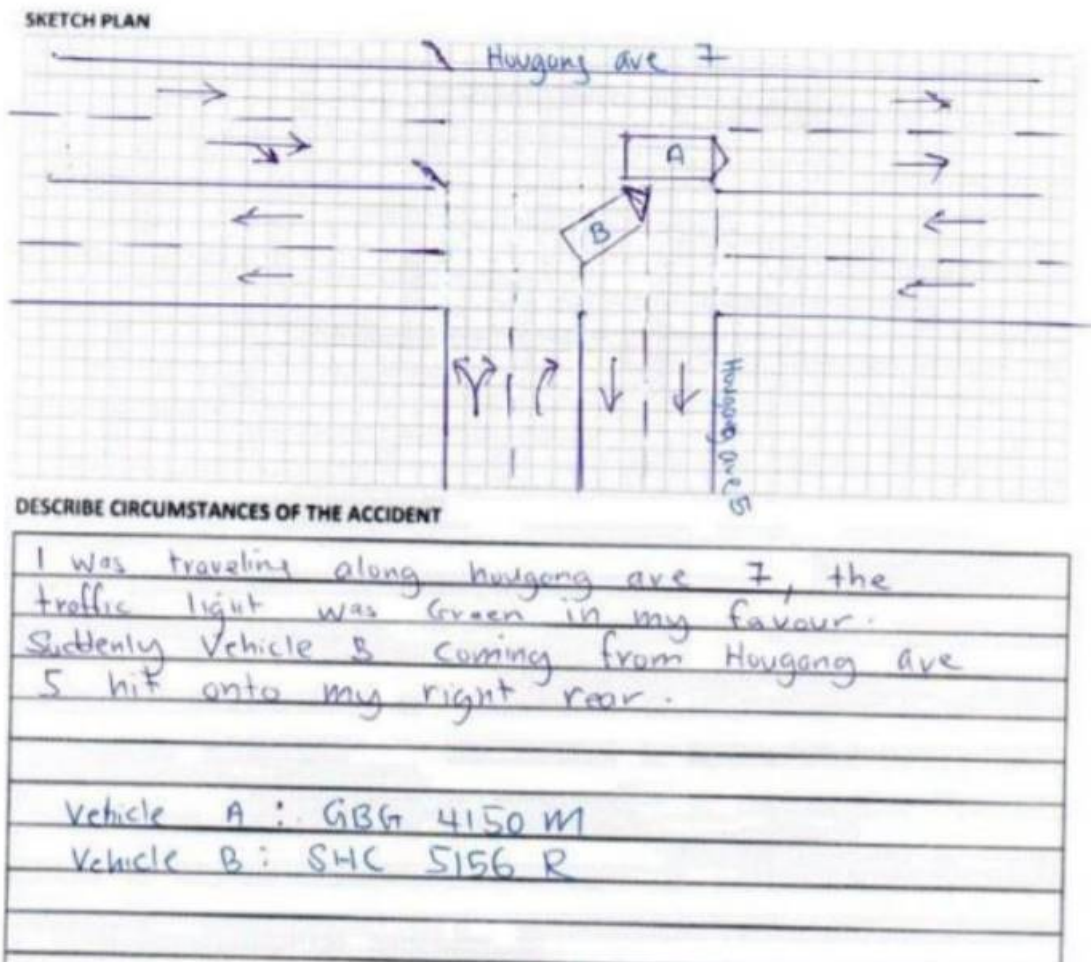 SKETCH PLAN
Hougang ave 7
A
B
Hougang ave 5
DESCRIBE CIRCUMSTANCES OF THE ACCIDENT
I was traveling along hougang ave 7, the
traffic light was Green in my favour.
Suddenly Vehicle B coming from Hougang ave
5 hit onto my right rear.
Vehicle A : GBG 4150 M
Vehicle B : SHC 5156 R